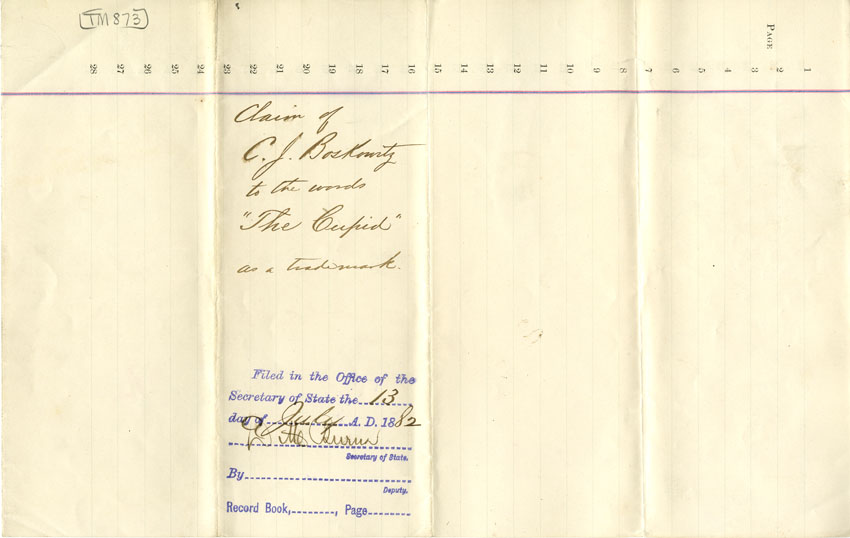 TM 873
28 27 26 25 24 23 22 21 20 19 18 17 16 15 14 13 12 11 10 9 8 7 6 5 4 3 2 1
PAGE
Claim of
C. J. Boskowitz
to the words
"The Cupid"
as a trademark.
Filed in the Office of the
Secretary of State the 13
day of July A. D. 1882
Secretary of State.
By
Deputy.
Record Book, , Page